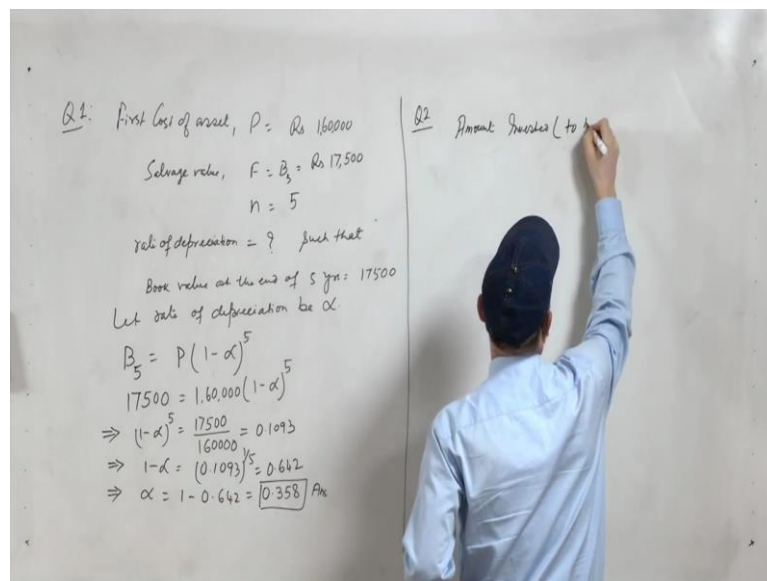 Q1: First Cost of asset, P = Rs 1,60,000
Salvage value, F = B₅ = Rs 17,500
n = 5
rate of depreciation = ? Such that
Book value at the end of 5 yrs = 17500
Let rate of depreciation be α.
B₅ = P(1-α)⁵
17500 = 1,60,000(1-α)⁵
⇒ (1-α)⁵ = 17500/160000 = 0.1093
⇒ 1-α = (0.1093)^1/5 = 0.642
⇒ α = 1 - 0.642 = 0.358 Ans
Q2 Amount Invested (to